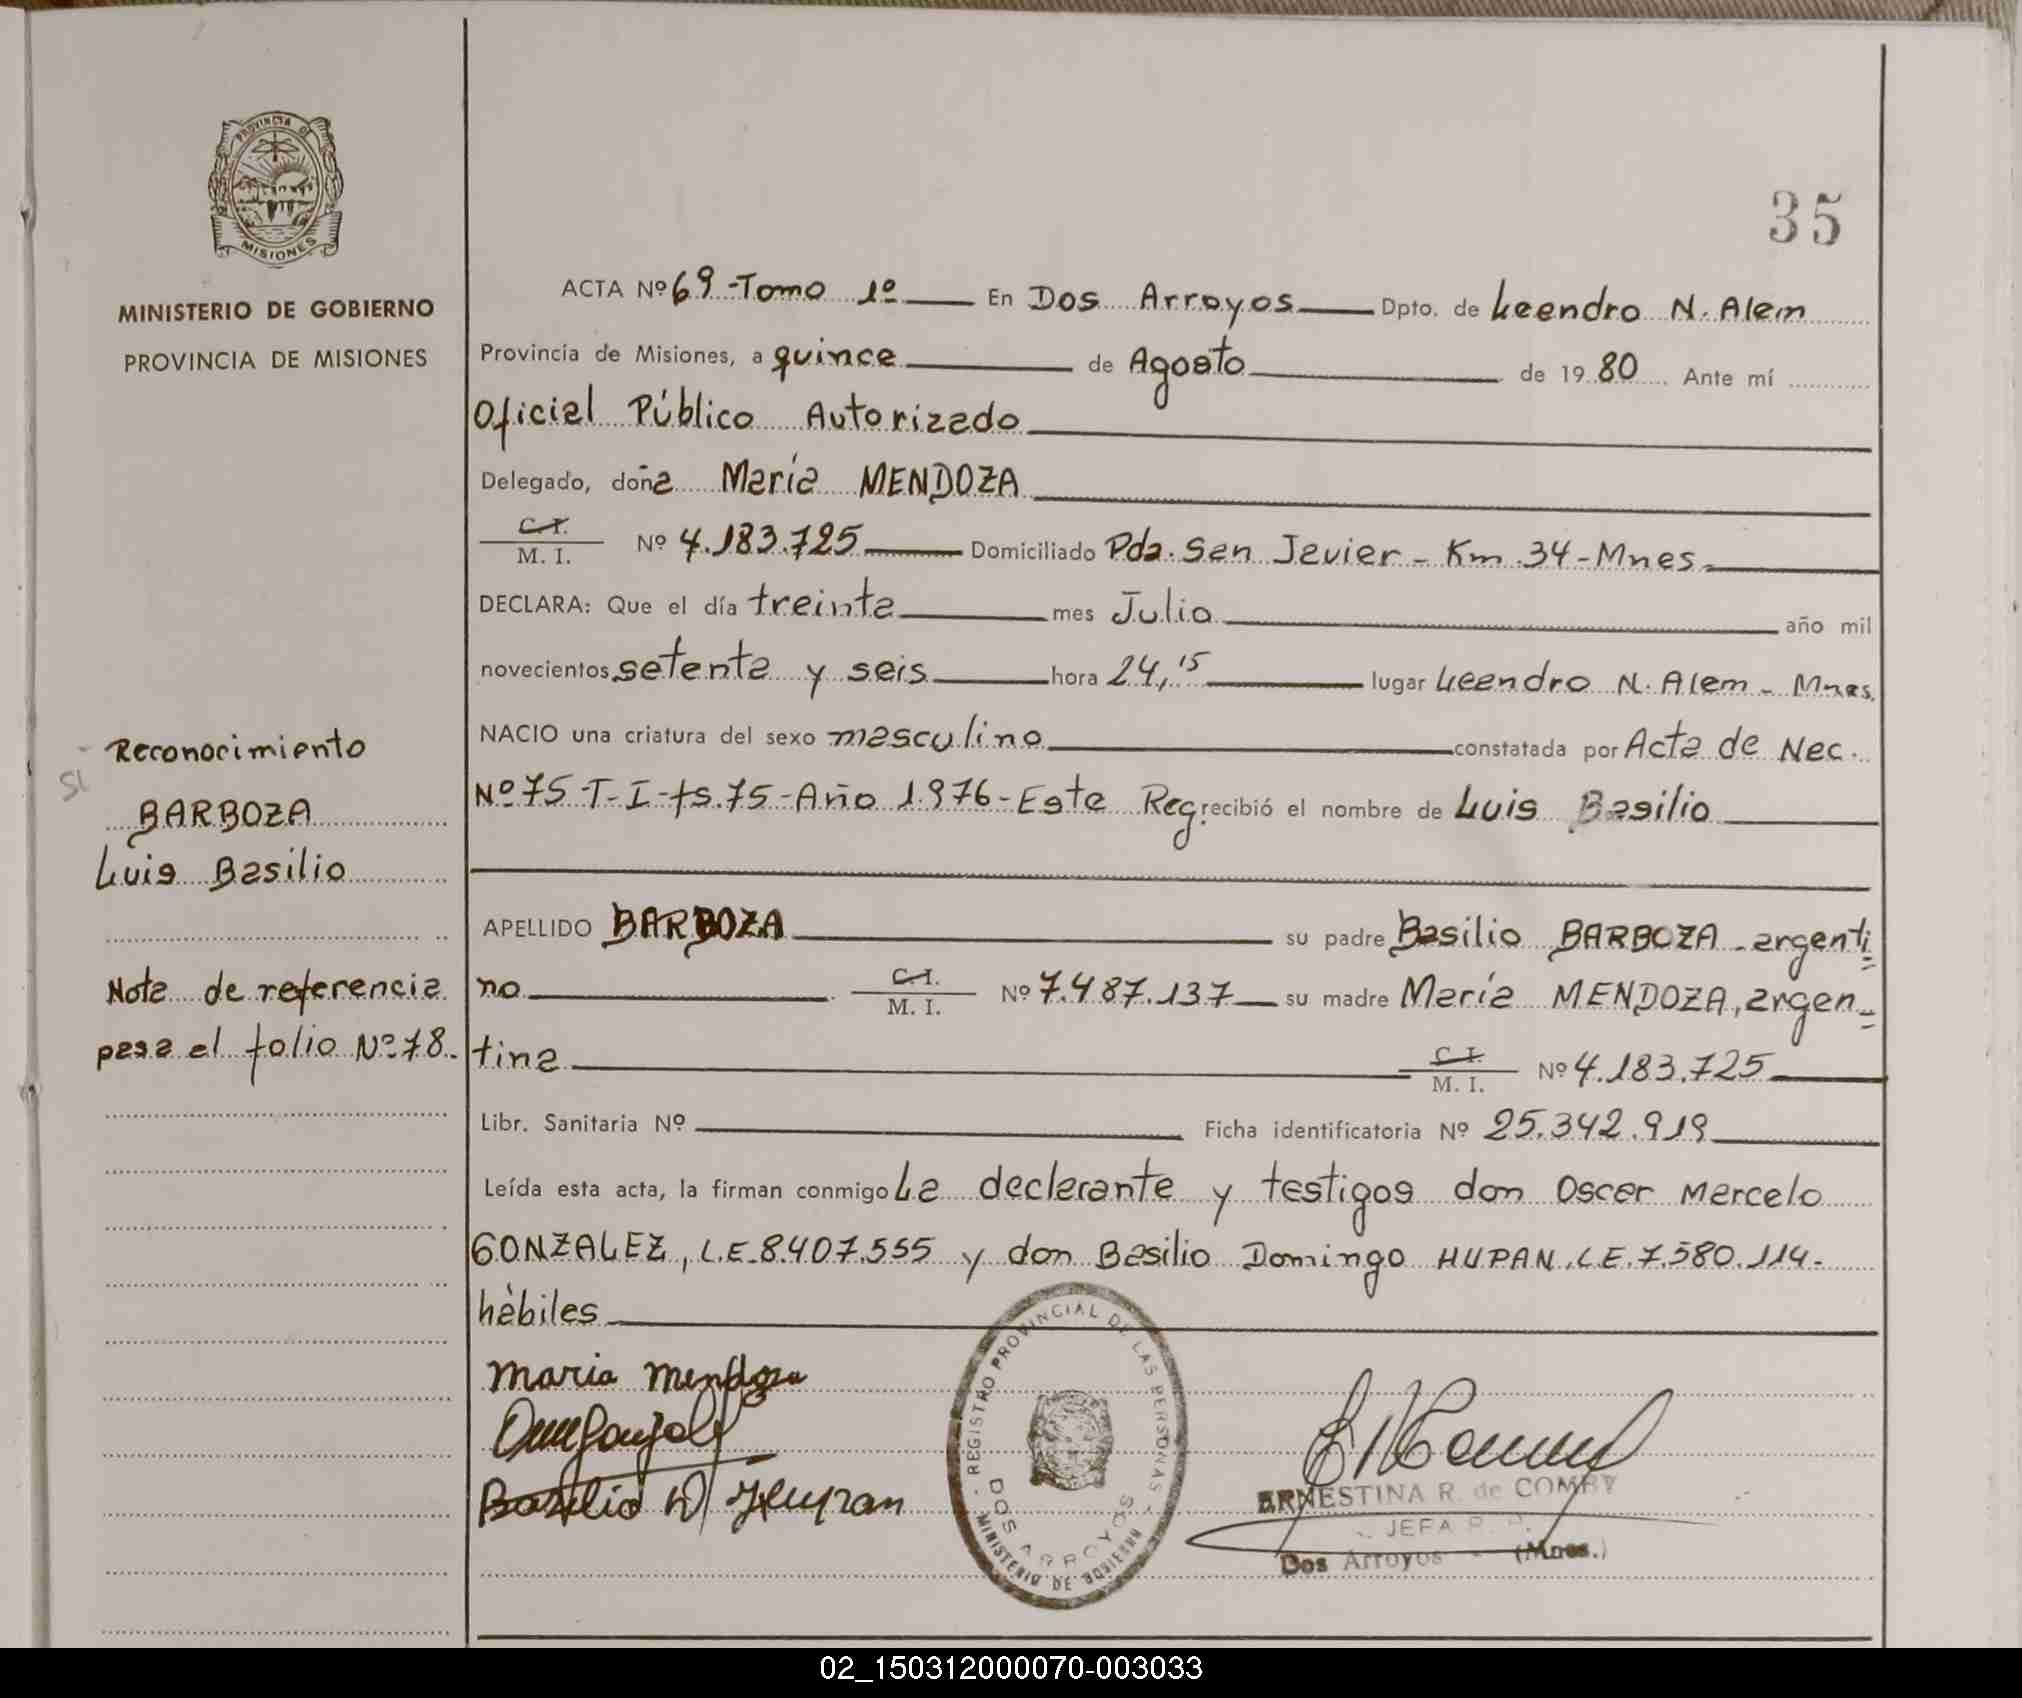 35
PROVINCIA DE
MISIONES
MINISTERIO DE GOBIERNO
PROVINCIA DE MISIONES
ACTA Nº 69-Tomo 1º En Dos Arroyos Dpto. de Leandro N. Alem
Provincia de Misiones, a quince de Agosto de 1980. Ante mí
Oficial Público Autorizado
Delegado, doña María MENDOZA
C.I.
M. I. Nº 4.183.725 Domiciliado Pda. San Javier - Km 34 - Mnes.
DECLARA: Que el día treinta mes Julio año mil
novecientos setenta y seis hora 24,15 lugar Leandro N. Alem - Mnes.
NACIO una criatura del sexo masculino constatada por Acta de Nac.
Nº 75-T-I-fs.75-Año 1.976-Este Reg. recibió el nombre de Luis Basilio
APELLIDO BARBOZA su padre Basilio BARBOZA - argenti=
no C.I. M. I. Nº 7.487.137 su madre María MENDOZA, argen=
tina C.I. M. I. Nº 4.183.725
Libr. Sanitaria Nº Ficha identificatoria Nº 25.342.919
Leída esta acta, la firman conmigo La declarante y testigos don Oscar Marcelo
GONZALEZ, L.E. 8.407.555 y don Basilio Domingo HUPAN, L.E. 7.580.114-
hábiles
Reconocimiento
SI
BARBOZA
Luis Basilio
Nota de referencia
pasa el folio Nº 78.
maria mendoza
Basilio D Hupan
REGISTRO PROVINCIAL DE LAS PERSONAS
DOS ARROYOS
MINISTERIO DE GOBIERNO
ERNESTINA R. de COMBY
JEFA R. P.
Dos Arroyos - (Mnes.)
02_150312000070-003033